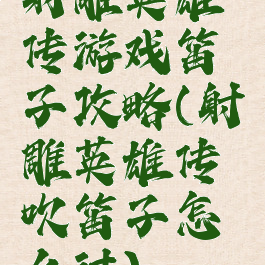 射雕英雄
传游戏笛
子攻略(射
雕英雄传
吹笛子怎
么过)